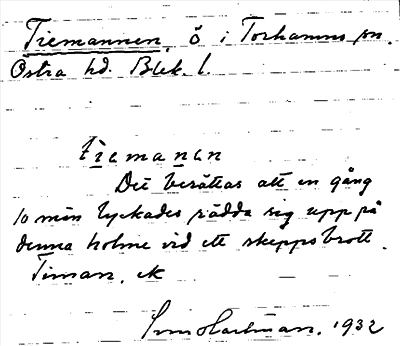 Tiemannen, ö i Torhamns sn.
Östra hd. Blek. l.
tiemanen
Det berättas att en gång
10 män lyckades rädda sig upp på
denna holme vid ett skeppsbrott.
Timan, ek
Hartman. 1932